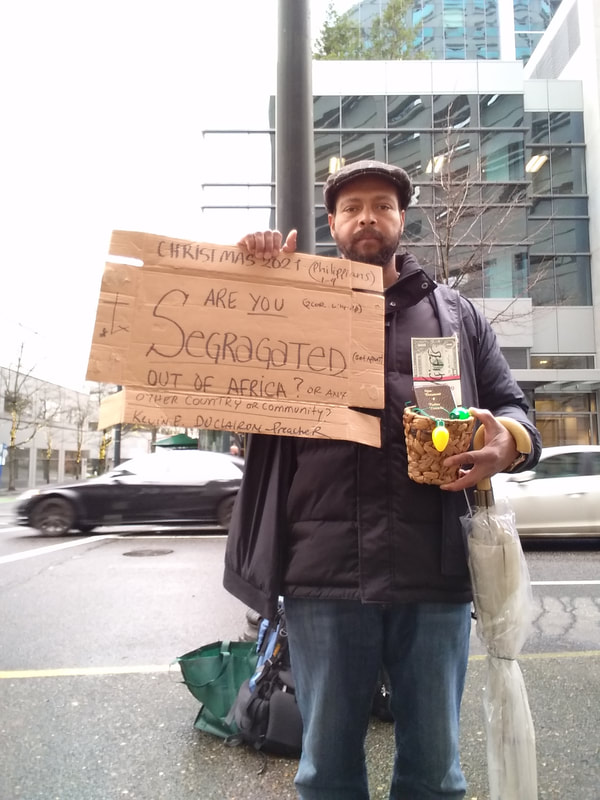 CHRISTMAS 2021 (Philippians)
ARE YOU
SEGRAGATED
OUT OF AFRICA? OR ANY
OTHER COUNTRY OR COMMUNITY?
KEVIN E DUCLAIRON - Preacher